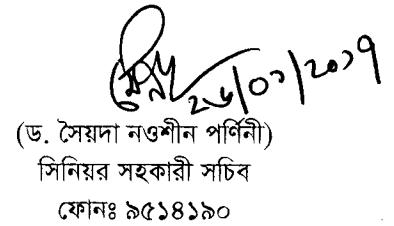 ২৬/০১/২০১৭
(ড. সৈয়দা নওশীন পর্ণিনী)
সিনিয়র সহকারী সচিব
ফোনঃ ৯৫১৪১৯০